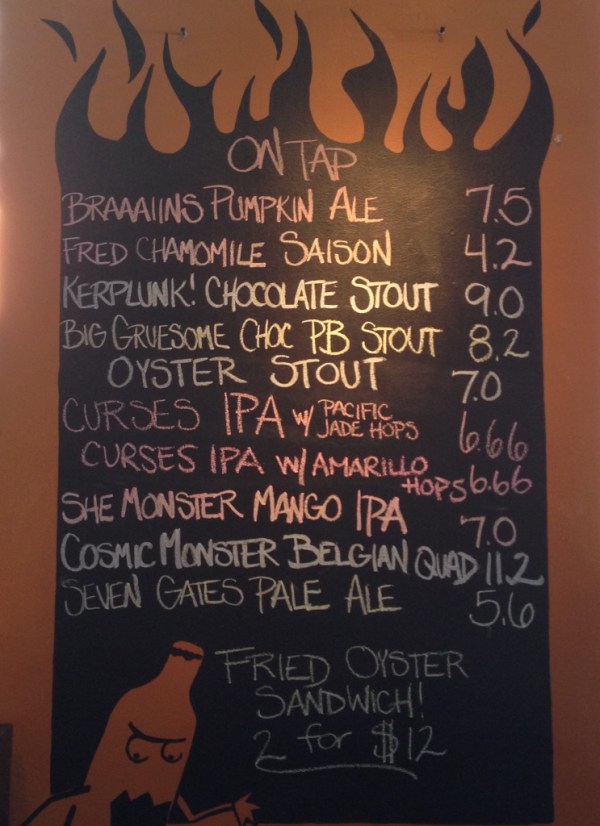 ON TAP
BRAAAIINS PUMPKIN ALE 7.5
FRED CHAMOMILE SAISON 4.2
KERPLUNK! CHOCOLATE STOUT 9.0
BIG GRUESOME CHOC PB STOUT 8.2
OYSTER STOUT 7.0
CURSES IPA W/ PACIFIC JADE HOPS 6.66
CURSES IPA W/ AMARILLO HOPS 6.66
SHE MONSTER MANGO IPA 7.0
COSMIC MONSTER BELGIAN QUAD 11.2
SEVEN GATES PALE ALE 5.6
FRIED OYSTER
SANDWICH!
2 for $12